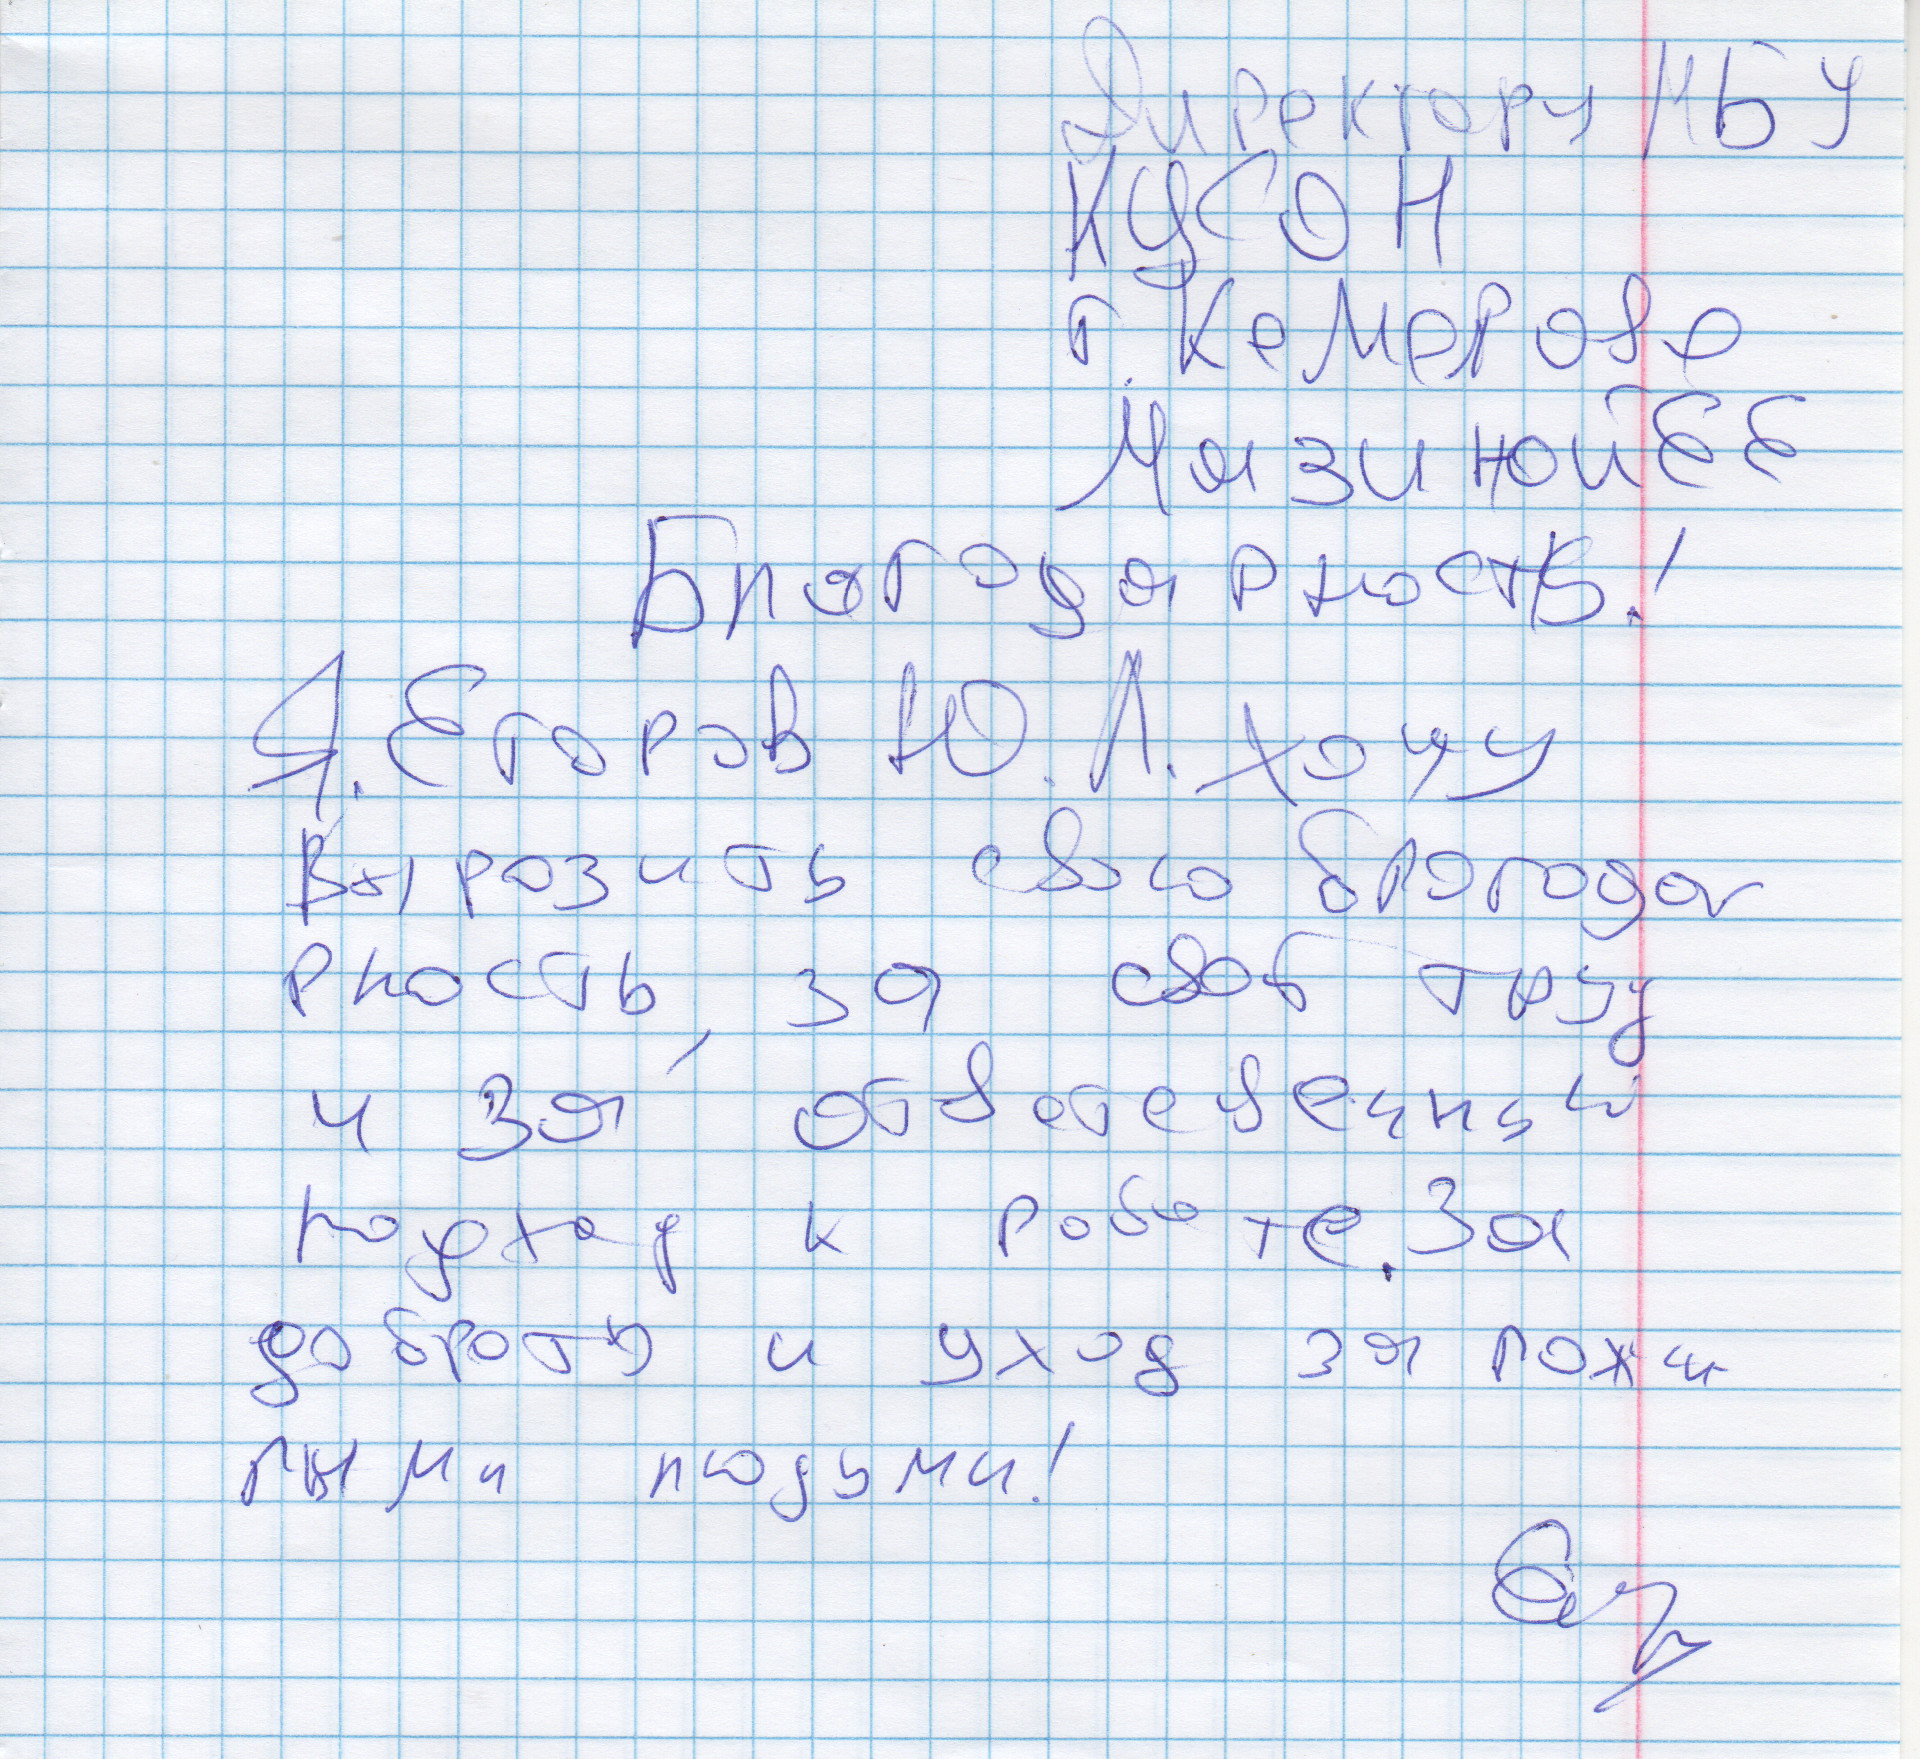 Директору МБУ
КЦСОН
г. Кемерово
Мазиной Е Е
Благодарность!
Я. Егоров Ю. Л. хочу
выразить свою благода
рность, за свой труд
и за ответственный
подход к работе. За
доброту и уход за пожи
лыми людьми!